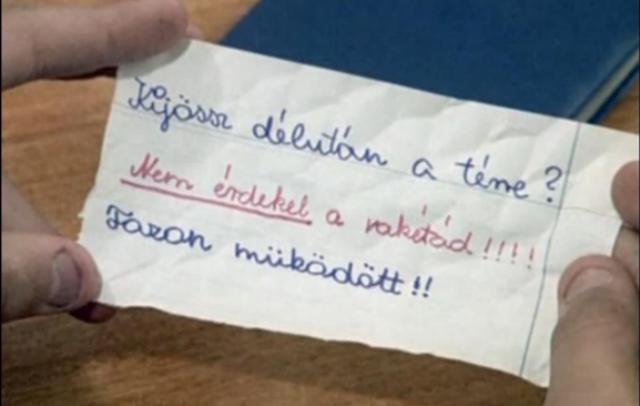 Kijössz délután a térre?
Nem érdekel a rakétád!!!!
Fazon müködött!!